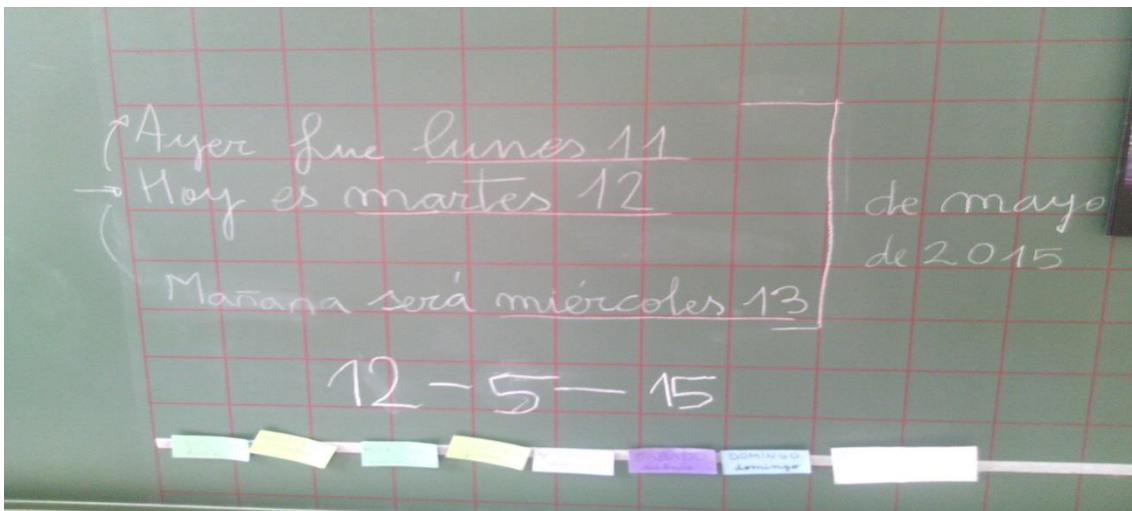 Ayer fue lunes 11
Hoy es martes 12
Mañana será miércoles 13
de mayo
de 2015
12-5-15
SÁBADO
sábado
DOMINGO
domingo